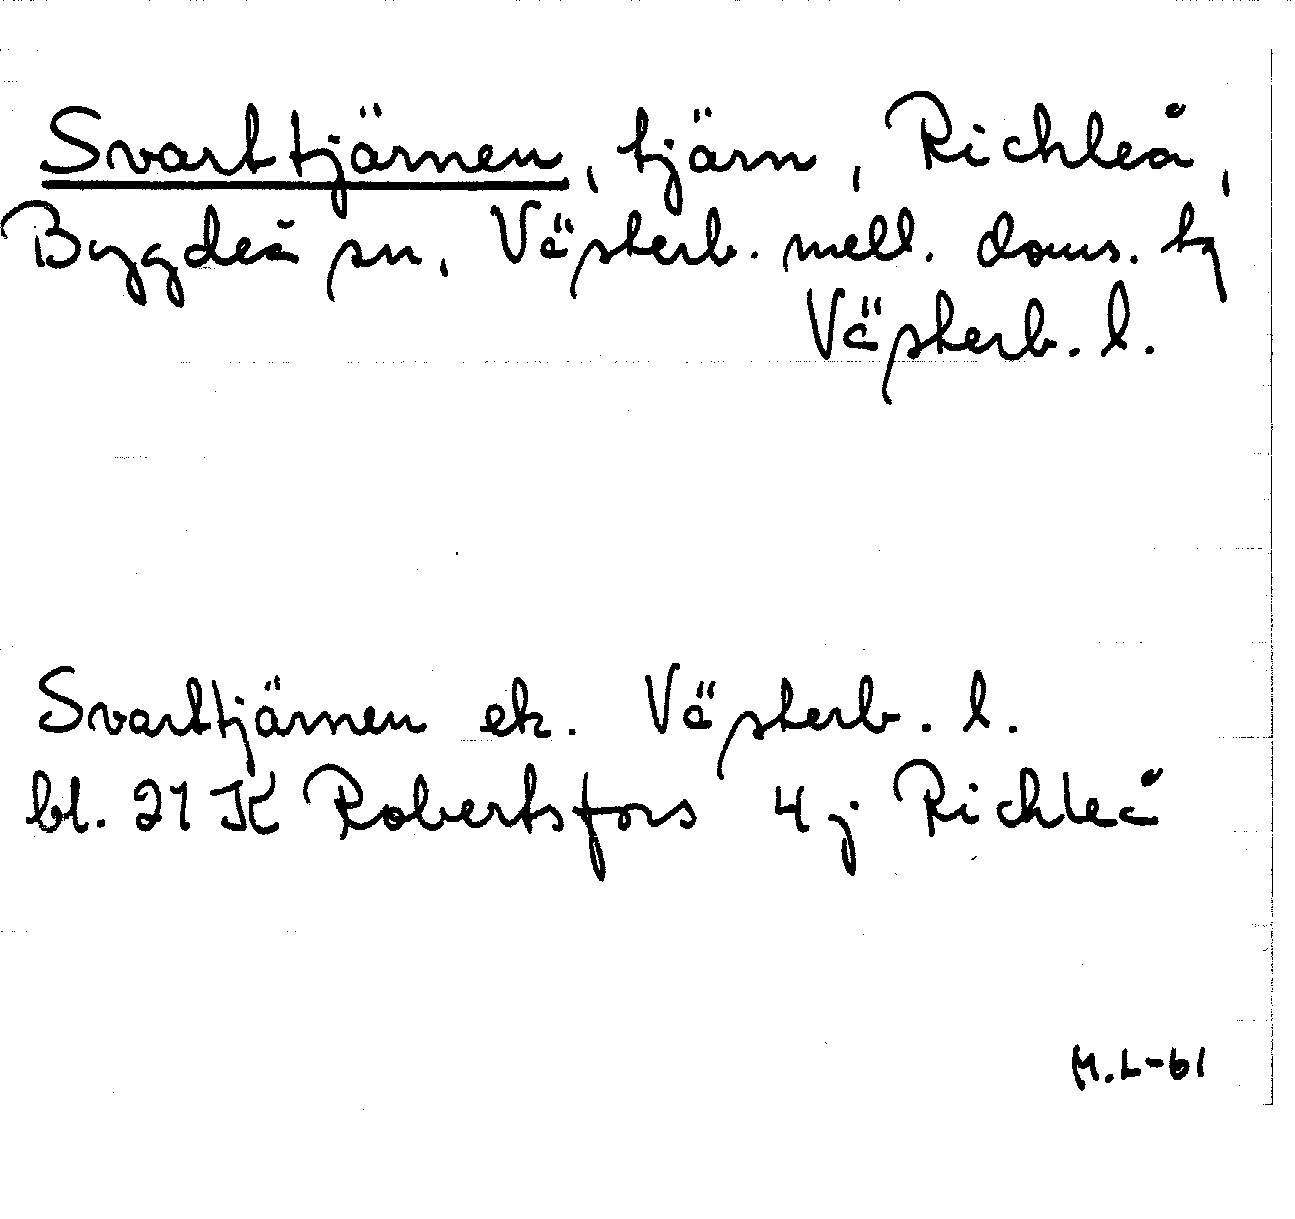 Svarttjärnen, tjärn, Richleå,
Bygdeå sn, Västerb. mell. doms. tg
Västerb. l.
Svarttjärnen ek. Västerb. l.
bl. 21 K Robertsfors 4j Richleå
M.L-61